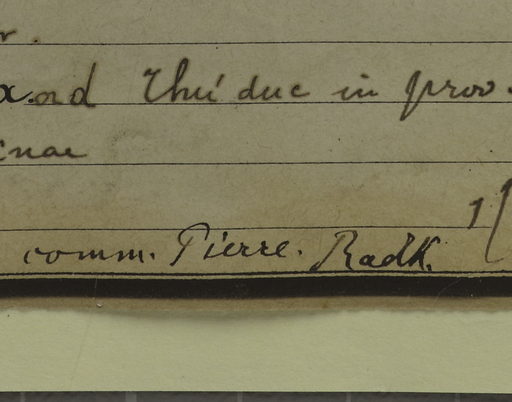 ad Thú duc in prov.
comm. Pierre. Radlk.
1